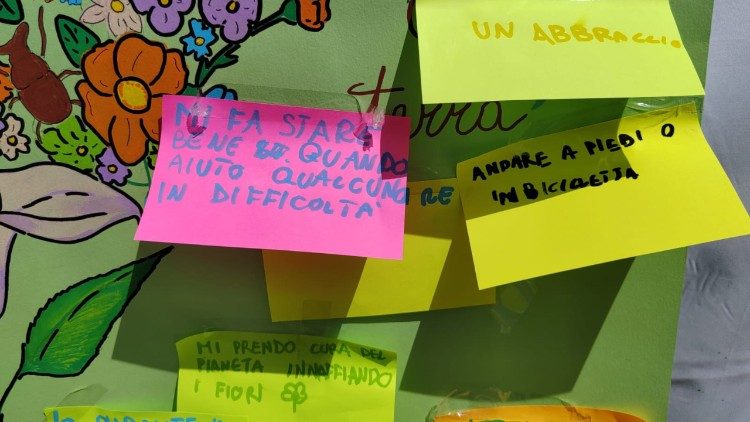 UN ABBRACCIO
terra
MI FA STARE
BENE QUANDO
AIUTO QUALCUNO
IN DIFFICOLTA'
RE
ANDARE A PIEDI O
IN BICICLETTA
MI PRENDO CURA DEL
PIANETA INNAFFIANDO
I FIORI
IO